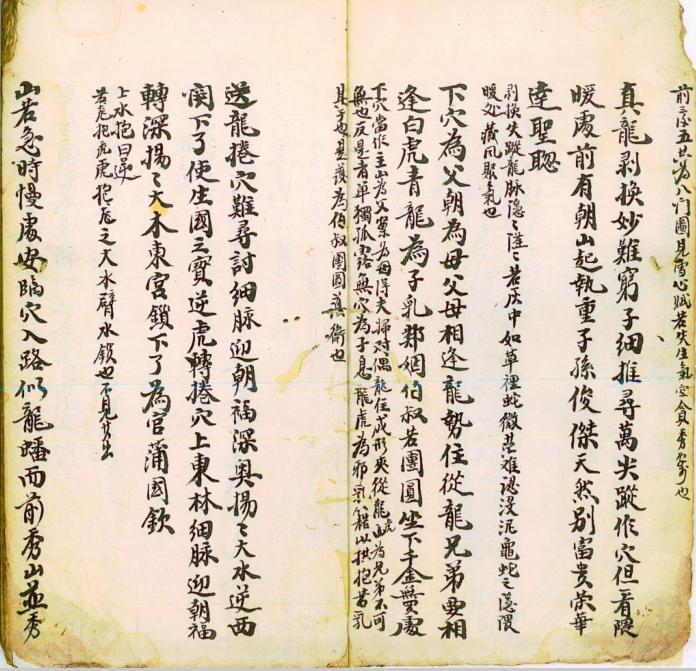 前三不五共為八門圖見雪心賦若失生氣空會秀山也
真龍剥換妙難窮子細推尋萬失蹤作穴但看隈
暖處前有朝山起執重子孫俊傑天然別富貴荣華
達聖聰
剥換失蹤龍脉隱〻若灰中如草裡蛇微茫难認没泥龜蛇之隱隈
暖处藏風聚氣也
下穴為父朝為母父母相逢龍勢住從龍兄弟要相
逢白虎青龍為子乳鄰姻伯叔若團圓坐下千金無處
下穴當作主山為父案為母得夫婦对偶龍住成形夾從龍虎山為兄弟不可
無也反是者單獨孤露無穴為子息龍虎為乳以拱抱若乳
其子也是護為伯叔團圓護衛也
送龍捲穴難尋討細脉迎朝福深奥揚〻大水逆西
関下了使生國之寶逆虎轉捲穴上東林細脉迎朝福
轉深揚〻大木東宮鎖下了為官蒲國欽
上水抱曰逆
若龙抱虎虎抱龙之大水臂水鎖也不見其出
山若急時慢處安臨穴入路似龍蟠而前秀山並秀